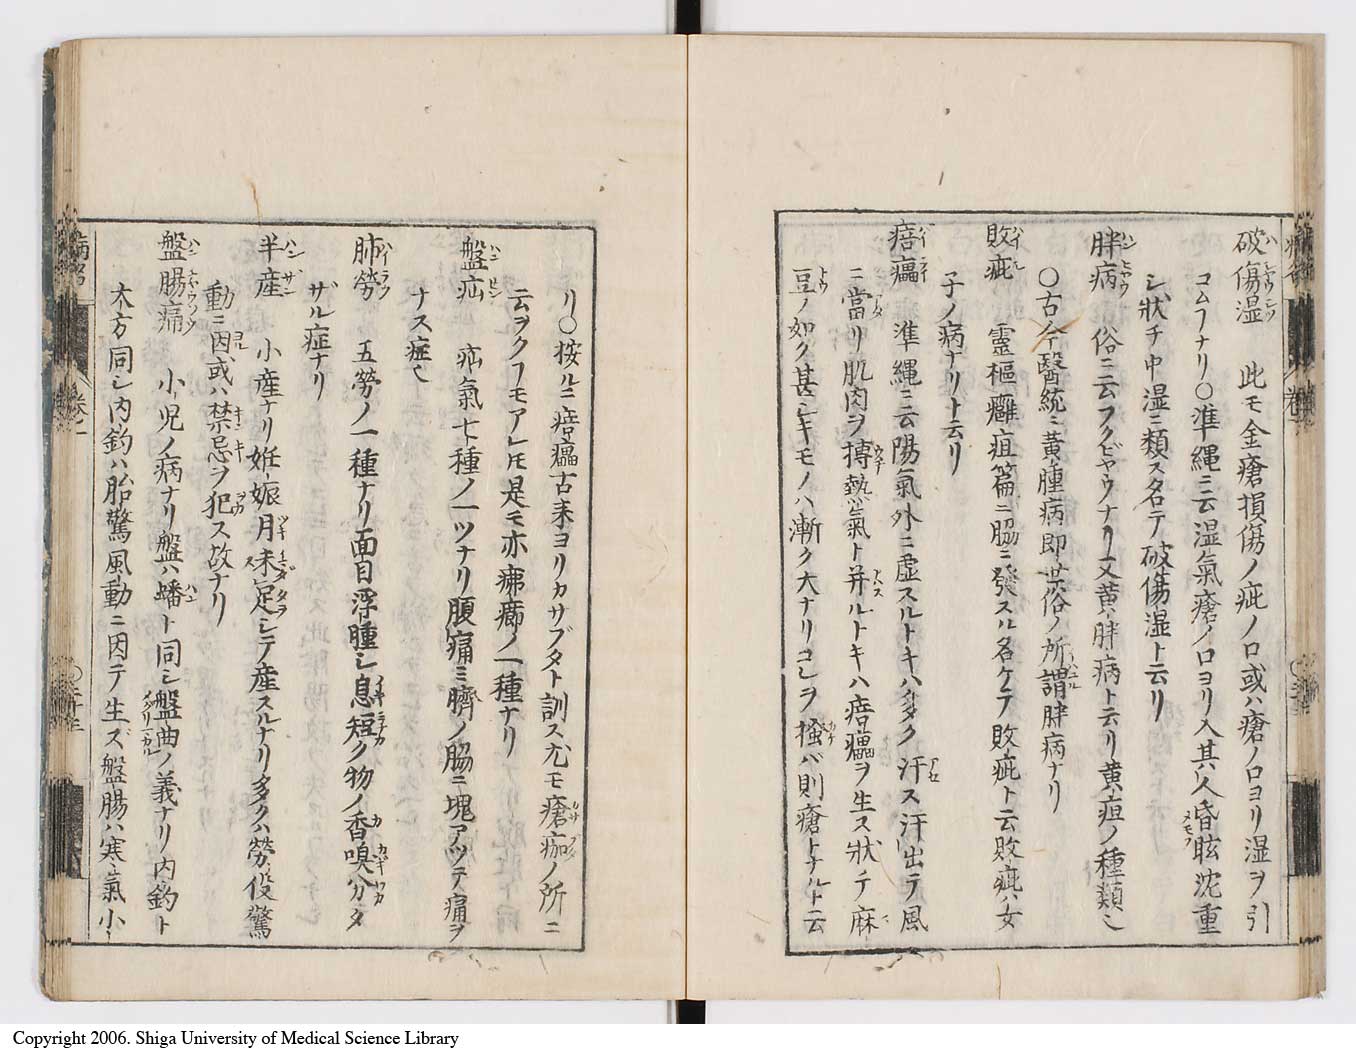 破傷湿 此モ金瘡損傷ノ疵ノ口或ハ瘡ノ口ヨリ湿ヲ引
コムフナリ〇準縄ニ云湿氣瘡ノ口ヨリ入其人昏眩沈重
シ狀チ中湿ニ類ス名テ破傷湿ト云リ
胖病 俗ニ云フクビヤウナリ又黄胖病ト云リ黄疸ノ種類ㄟ
〇古今醫統ニ黄腫病即世俗ノ所謂胖病ナリ
敗疵 靈樞癰疽篇ニ脇ニ發スル名ケテ敗疵ト云敗疵ハ女
子ノ病ナリト云リ
痦㿔 準縄ニ云陽氣外ニ虚スルトキハ多ク汗ス汗出テ風
ニ當リ肌肉ヲ搏熱氣ト并ルトキハ痦㿔ヲ生ス狀チ麻
豆ノ如ク甚シキモノハ漸ク大ナリコレヲ搔バ則瘡トナルト云
リ〇按ルニ痦㿔古来ヨリカサブタト訓ス尤モ瘡痂ノ所ニ
云ヲクフモアレ𪜈是モ亦疿癤ノ一種ナリ
盤疝 疝氣七種ノ一ツナリ腹痛ミ臍ノ脇ニ塊アツテ痛ヲ
ナス症ㄟ
肺勞 五勞ノ一種ナリ面目浮腫シ息短ク物ノ香嗅分タ
ザル症ナリ
半産 小産ナリ姙娠月未足シテ産スルナリ多クハ勞役驚
動ニ因或ハ禁忌ヲ犯ス故ナリ
盤腸痛 小児ノ病ナリ盤ハ蟠ト同シ盤曲ノ義ナリ内釣ト
大方同シ内釣ハ胎驚風動ニ因テ生ズ盤腸ハ寒氣小
卷一
Copyright 2006. Shiga University of Medical Science Library